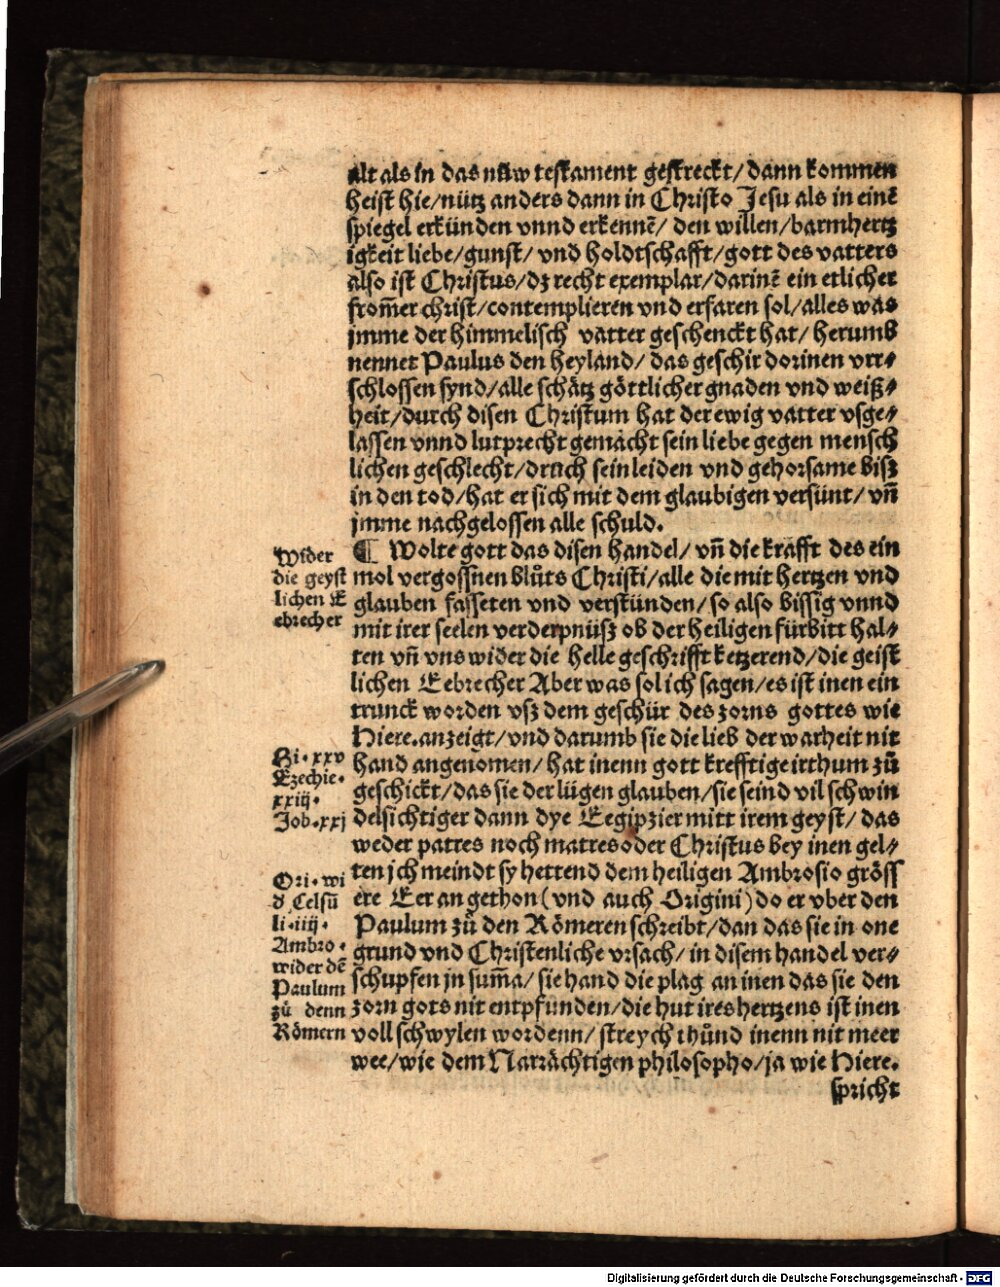 alt als in das nüw testament gestreckt/dann kommen
heist hie/nütz anders dann in Christo Jesu als in einē
spiegel erkünden vnnd erkennē/ den willen/barmhertz
igkeit liebe/gunst/ vnd holdtschafft/gott des vatters
also ist Christus/dz recht exemplar/darinē ein etlicher
from̄er christ/contemplieren vnd erfaren sol/alles was
jmme der himmelisch vatter geschenckt hat/ herumb
nennet Paulus den heyland/ das geschir dorinen vrr⸗
schlossen synd/alle schätz göttlicher gnaden vnd weiß⸗
heit/durch disen Christum hat der ewig vatter vsge⸗
lassen vnnd lutprecht gemacht sein liebe gegen mensch
lichen geschlecht/druch sein leiden vnd gehorsame bisz
in den tod/hat er sich mit dem glaubigen versünt/ vn̄
jmme nachgelossen alle schuld.
Wider
die geyst
lichen E
ebrecher
¶ Wolte gott das disen handel/ vn̄ die krafft des ein
mol vergossnen blůts Christi/alle die mit hertzen vnd
glauben fasseten vnd verstünden/so also bissig vnnd
mit irer seelen verderpnüsz ob der heiligen fürbitt hal⸗
ten vn̄ vns wider die helle geschrifft ketzerend/die geist
lichen Eebrecher Aber was sol ich sagen/es ist inen ein
trunck worden vsz dem geschür des zorns gottes wie
Hiere.anzeigt/vnd darumb sie die lieb der warheit nit
Hi.xxv
Ezechie.
xxiij.
Job.xxj
hand angenomen/ hat inenn gott krefftige irthum zů
geschickt/das sie der lügen glauben/sie seind vil schwin
delsichtiger dann dye Eegipzier mitt irem geyst/ das
weder patres noch matres oder Christus bey inen gel⸗
Ori.wi
d Celsū
li.iiij.
Ambro.
wider dē
Paulum
zů denn
Römern
ten jch meindt sy hettend dem heiligen Ambrosio gröss
ere Eer angethon(vnd auch Origini)do er vber den
Paulum zů den Römeren schreibt/dan das sie in one
grund vnd Christenliche vrsach/in disem handel ver⸗
schupfen jn sum̄a/sie hand die plag an inen das sie den
zorn gots nit entpfunden/die hut ires hertzens ist inen
voll schwylen wordenn/streych thůnd inenn nit meer
wee/wie dem Narrächtigen philosopho/ja wie Hiere.
spricht
Digitalisierung gefördert durch die Deutsche Forschungsgemeinschaft - DFG